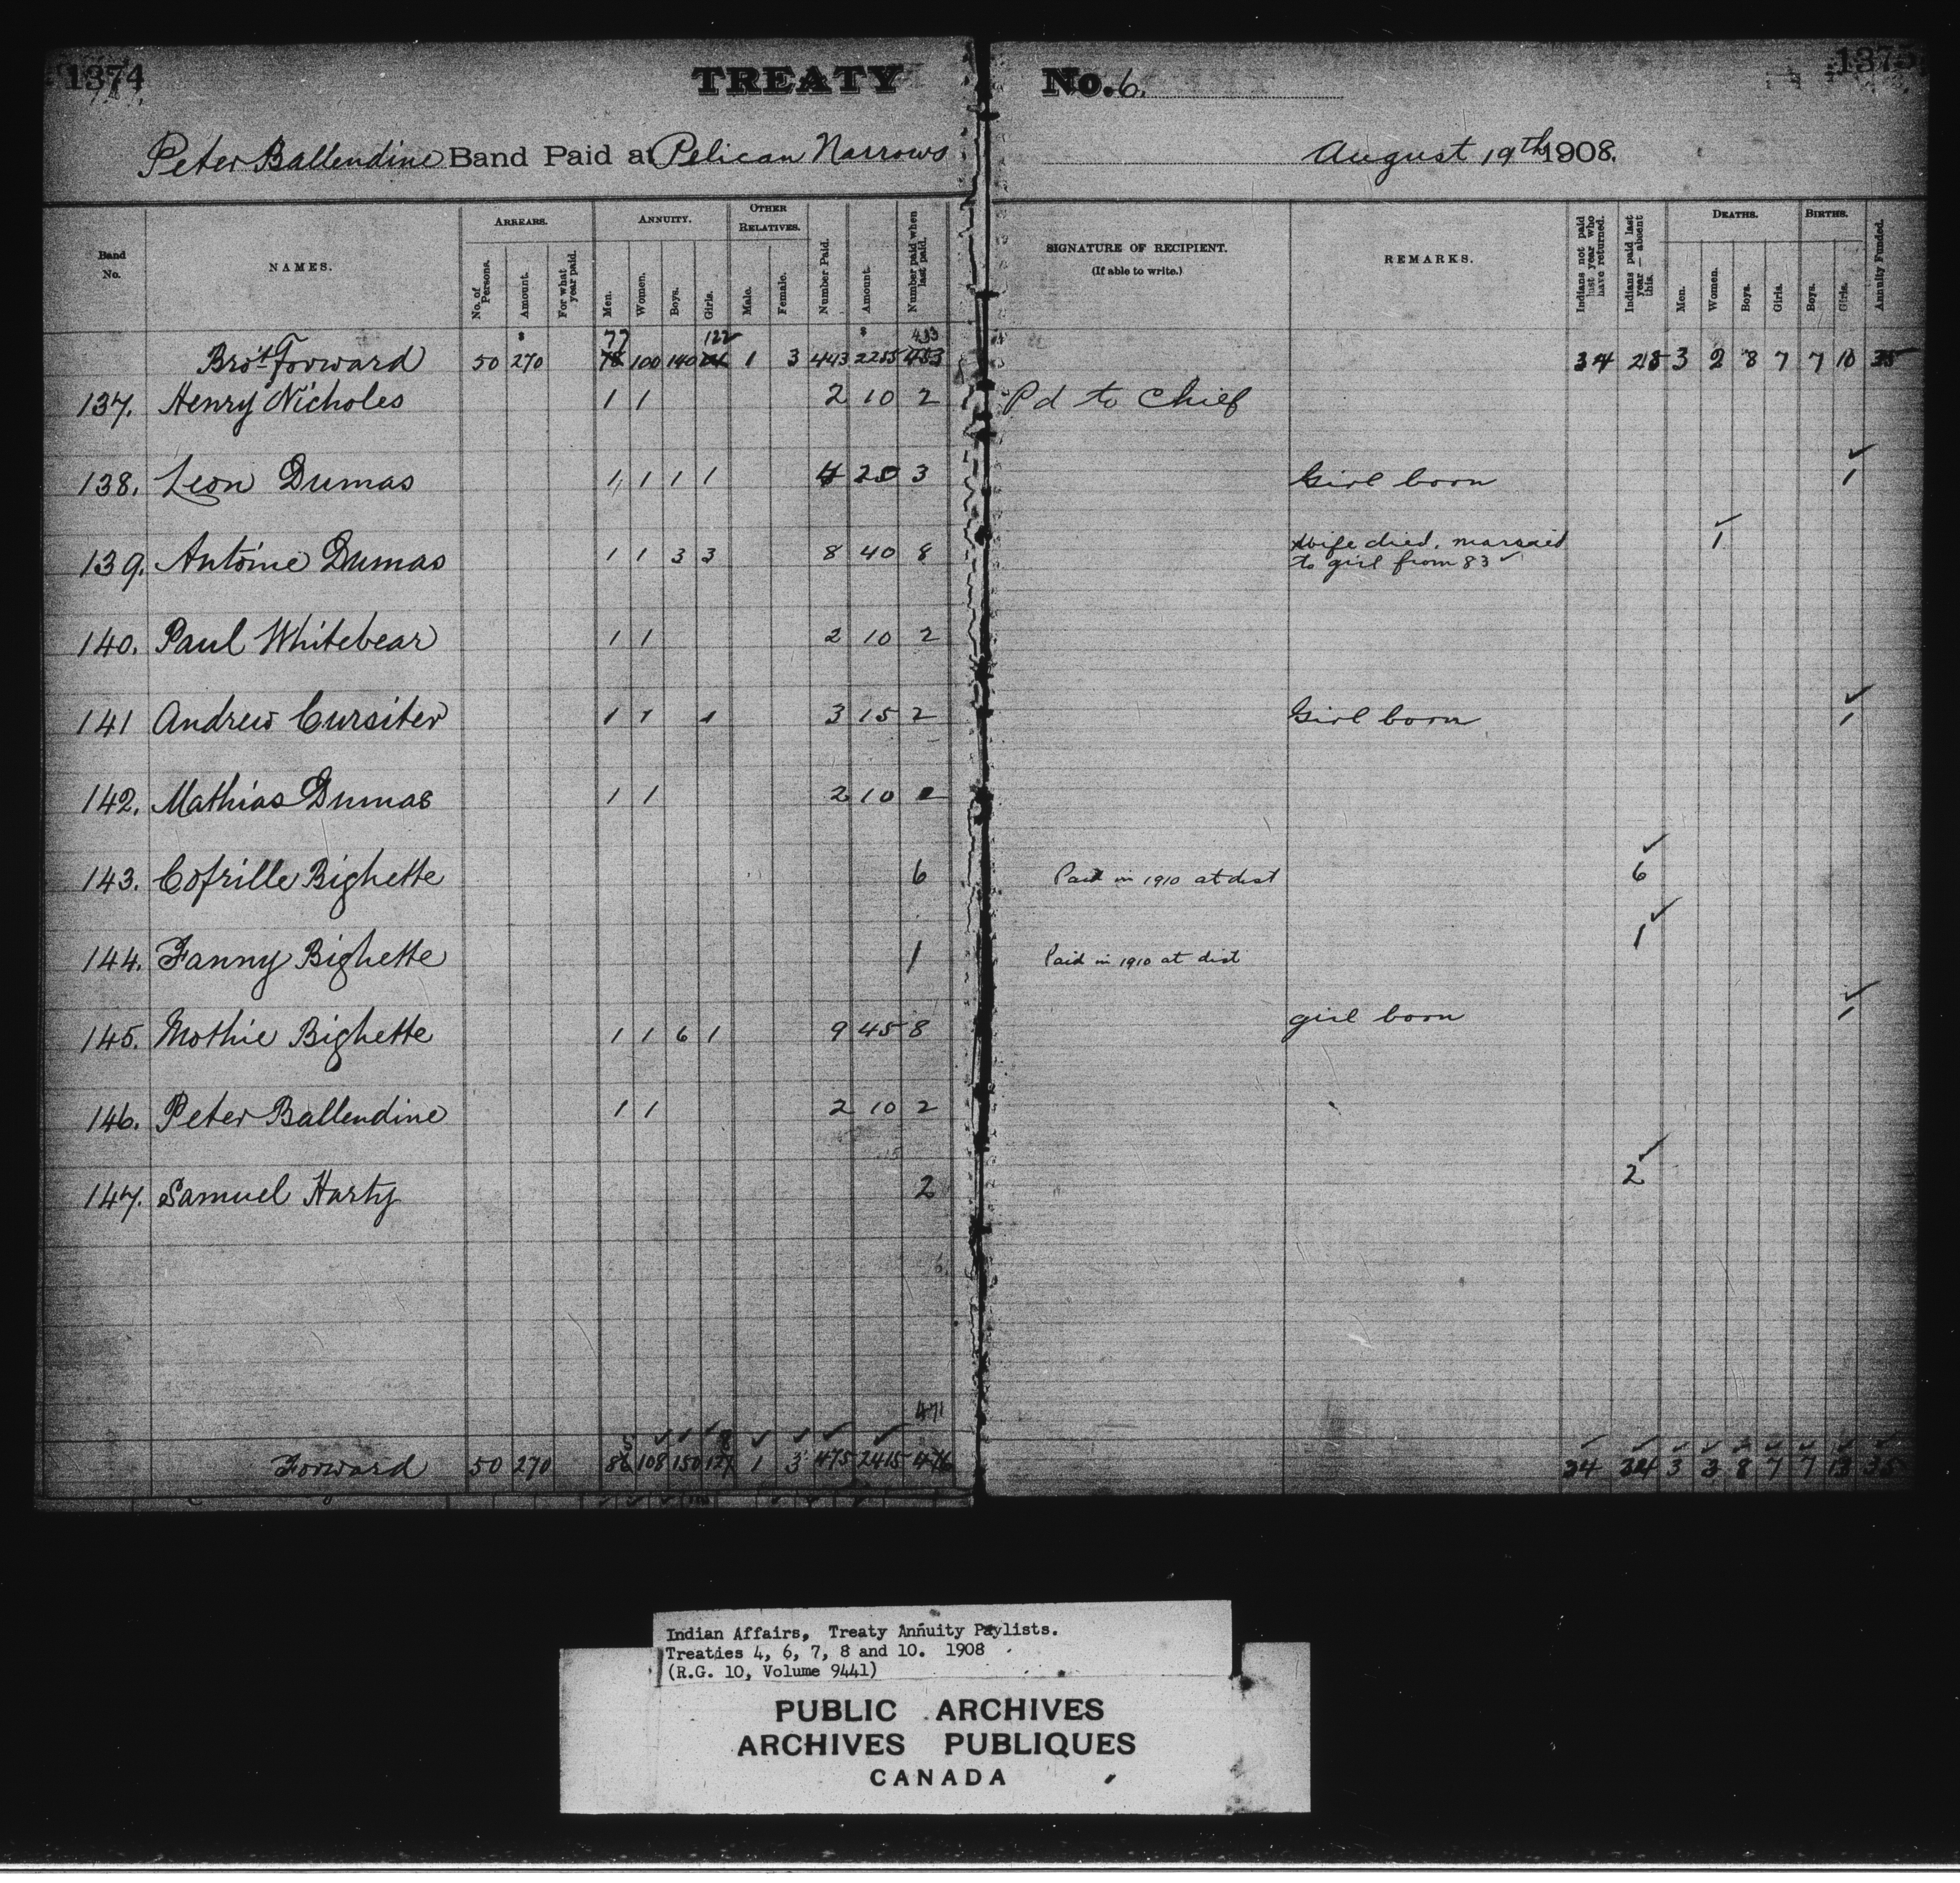 1374
TREATY No. 6.
1375
Peter Ballendine Band Paid at Pelican Narrows August 19th 1908.
Band No.
NAMES.
ARREARS.
No. of Persons.
Amount.
For what year paid.
ANNUITY.
Men.
Women.
Boys.
Girls.
OTHER RELATIVES.
Male.
Female.
Number Paid.
Amount.
Number paid when last paid.
SIGNATURE OF RECIPIENT.
(If able to write.)
REMARKS.
Indians not paid last year who have returned.
Indians paid last year — absent this.
DEATHS.
Men.
Women.
Boys.
Girls.
BIRTHS.
Boys.
Girls.
Annuity Funded.
77 122 433
Bro't Forward 50 270 78 100 140 1 3 443 2255 453 34 25 3 2 8 7 7 10 35
137. Henry Nicholes 1 1 2 10 2 Pd to Chief
138. Leon Dumas 1 1 1 1 4 20 3 Girl born 1
139. Antoine Dumas 1 1 3 3 8 40 8 Wife died, married 1
to girl from 83
140. Paul Whitebear 1 1 2 10 2
141 Andrew Cursiter 1 1 1 3 15 2 Girl born 1
142. Mathias Dumas 1 1 2 10 2
143. Cofrille Bighette 6 Paid in 1910 at dist 6
144. Fanny Bighette 1 Paid in 1910 at dist 1
145. Mothie Bighette 1 1 6 1 9 45 8 girl born 1
146. Peter Ballendine 1 1 2 10 2
147. Samuel Harty 2 2
471
5 8
Forward 50 270 86 108 150 127 1 3 475 2415 476 34 34 3 3 8 7 7 13 35
Indian Affairs, Treaty Annuity Paylists.
Treaties 4, 6, 7, 8 and 10. 1908
(R.G. 10, Volume 9441)
PUBLIC ARCHIVES
ARCHIVES PUBLIQUES
CANADA